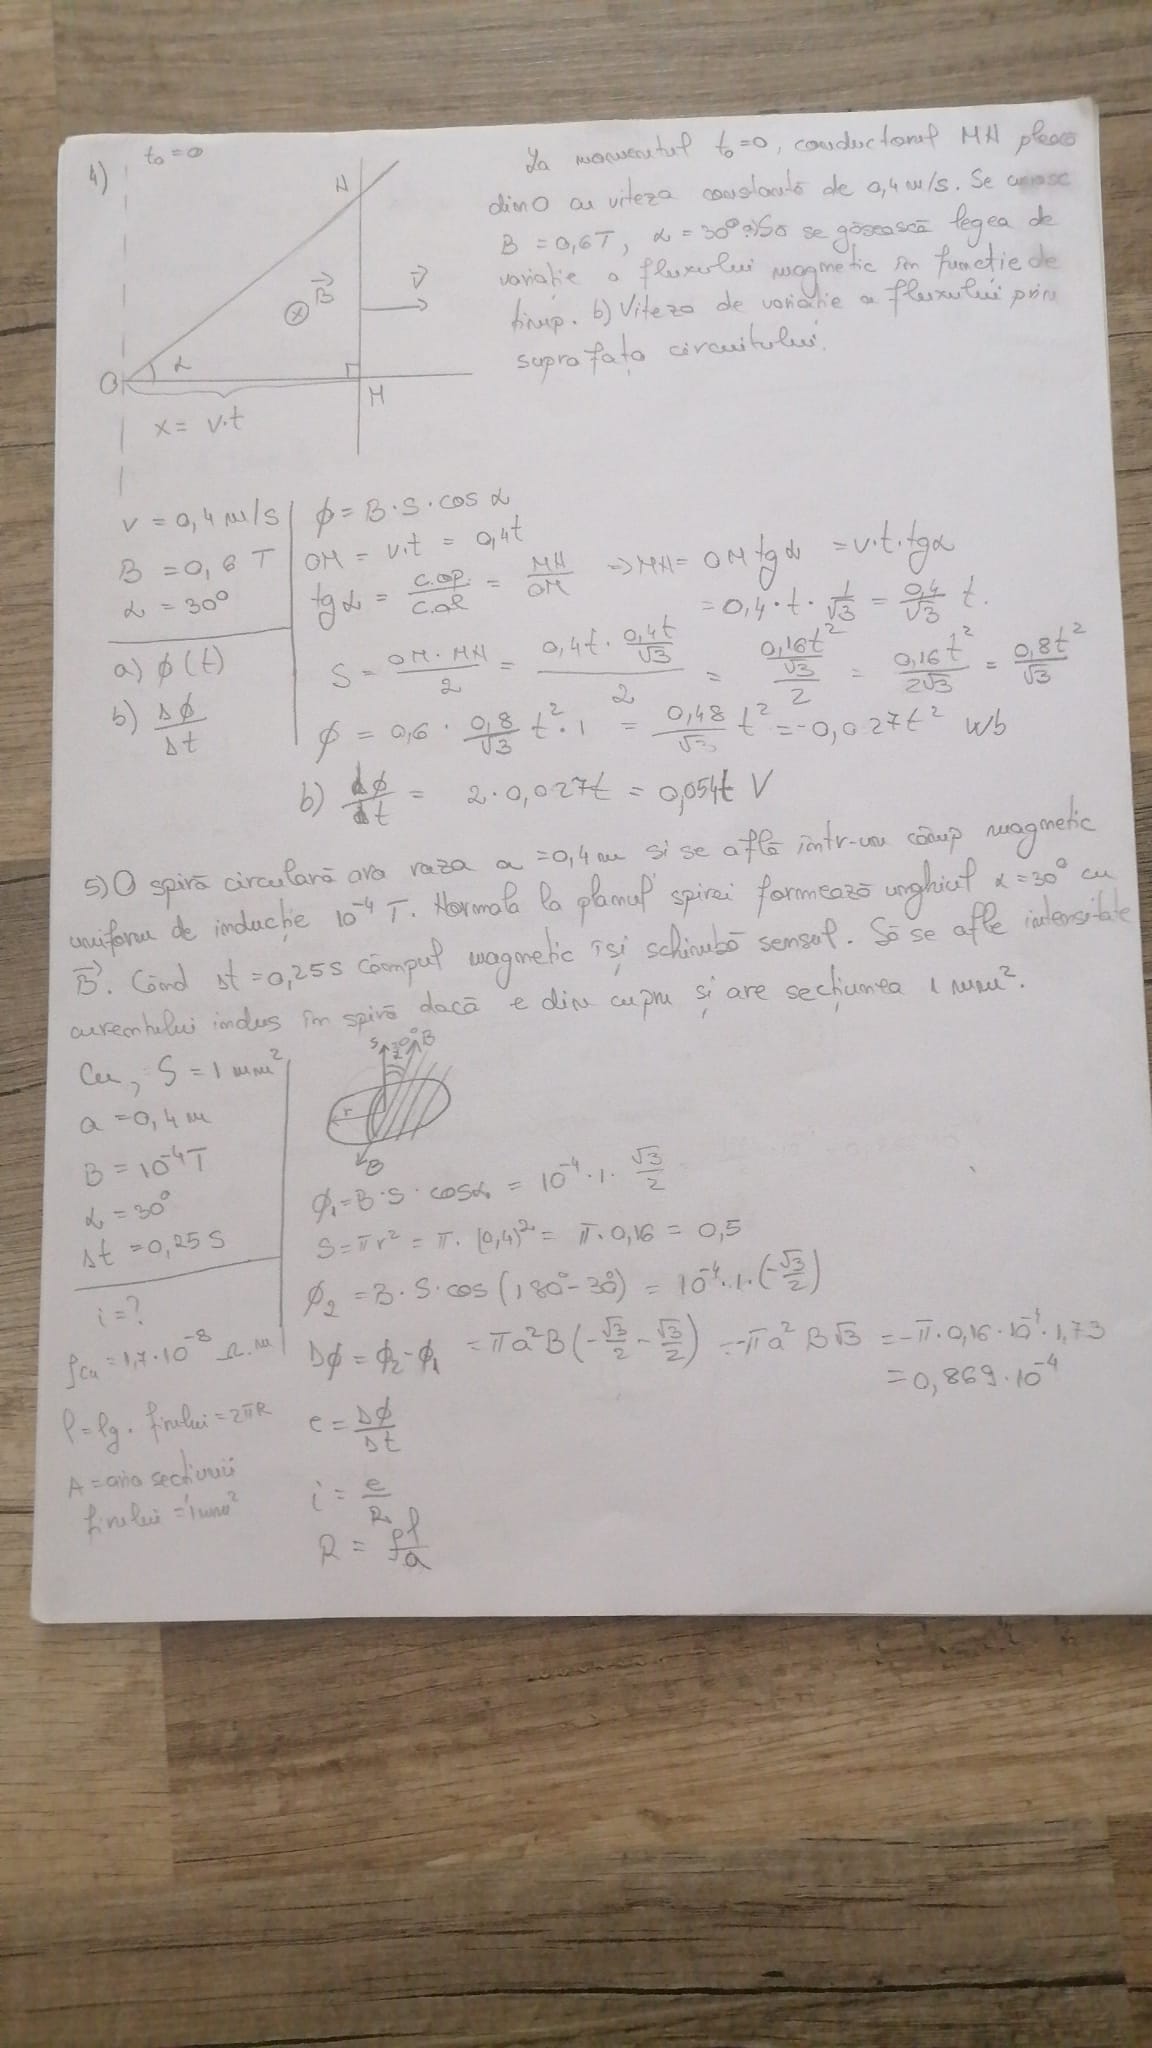 4)
t₀=0
La momentul t₀=0, conductorul MN pleacă
din O cu viteza constantă de 0,4 m/s. Se cunosc
B = 0,6T, α = 30° Să se găsească legea de
variație a fluxului magnetic în funcție de
timp. b) Viteza de variație a fluxului prin
suprafața circuitului.
N
B⃗
v⃗
α
O
M
x = v·t
v = 0,4 m/s
B = 0,6 T
α = 30°
a) ϕ(t)
b) Δϕ/Δt
ϕ = B·S·cos α
OM = v·t = 0,4t
tg α = c.op./c.al = MN/OM => MN = OM tg α = v·t·tgα
= 0,4·t·1/√3 = 0,4/√3 t.
S = OM·MN/2 = (0,4t·0,4t/√3)/2 = (0,16t²/√3)/2 = 0,16t²/2√3 = 0,8t²/√3
ϕ = 0,6 · 0,8/√3 t²·1 = 0,48/√3 t² = 0,027t² Wb
b) dϕ/dt = 2·0,027t = 0,054t V
5) O spiră circulară are raza a = 0,4m și se află într-un câmp magnetic
uniform de inducție 10⁻⁴ T. Normala la planul spirei formează unghiul α = 30° cu
B⃗. Când Δt = 0,25s câmpul magnetic își schimbă sensul. Să se afle intensitate
curentului indus în spiră dacă e din cupru și are secțiunea 1 mm².
Cu, S = 1 mm²
a = 0,4 m
B = 10⁻⁴T
α = 30°
Δt = 0,25 S
i = ?
ρCu = 1,7·10⁻⁸ Ω·m
l = lg. firului = 2πR
A = aria secțiunii
firului = 1mm²
S
30°
B
r
B
ϕ₁ = B·S·cosα = 10⁻⁴·1·√3/2
S = πr² = π·(0,4)² = π·0,16 = 0,5
ϕ₂ = B·S·cos(180°-30°) = 10⁻⁴·1·(-√3/2)
Δϕ = ϕ₂-ϕ₁ = πa²B(-√3/2-√3/2) = -πa²B√3 = -π·0,16·10⁻⁴·1,73
= 0,869·10⁻⁴
e = Δϕ/Δt
i = e/R
R = ρl/a